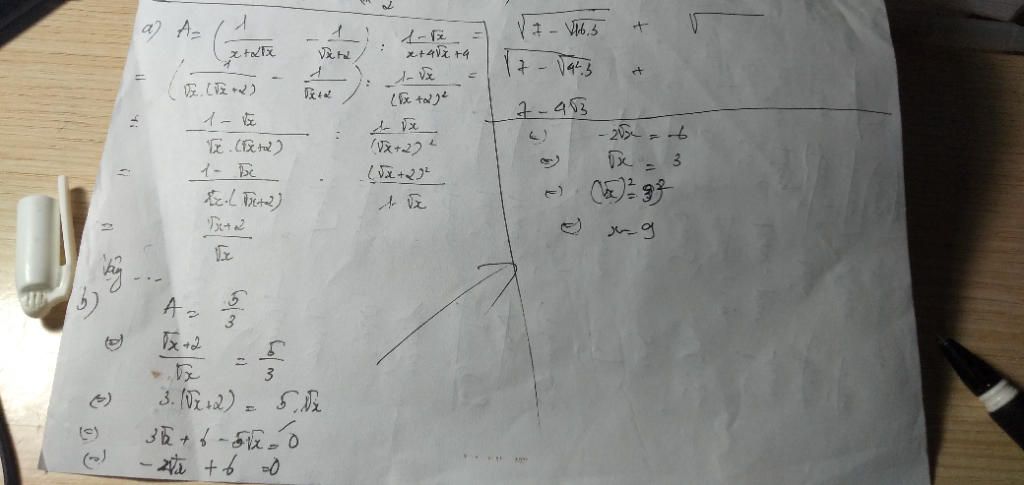 a) A = (1/(x+2√x) - 1/(√x+2)) : (1-√x)/(x+4√x+4) =
= (1/(√x.(√x+2)) - 1/(√x+2)) : (1-√x)/(√x+2)² =
= (1-√x)/(√x.(√x+2)) : (1-√x)/(√x+2)²
= (1-√x)/(√x.(√x+2)) . (√x+2)²/(1-√x)
= (√x+2)/√x
Vậy ...
b) A = 5/3
(=) (√x+2)/√x = 5/3
(=) 3.(√x+2) = 5.√x
(=) 3√x + 6 - 5√x = 0
(=) -2√x + 6 = 0
√(7 - √(16.3)) + √
√(7 - √(4².3)) +
7 - 4√3
(=) -2√x = -6
(=) √x = 3
(=) (√x)² = 3²
(=) x = 9